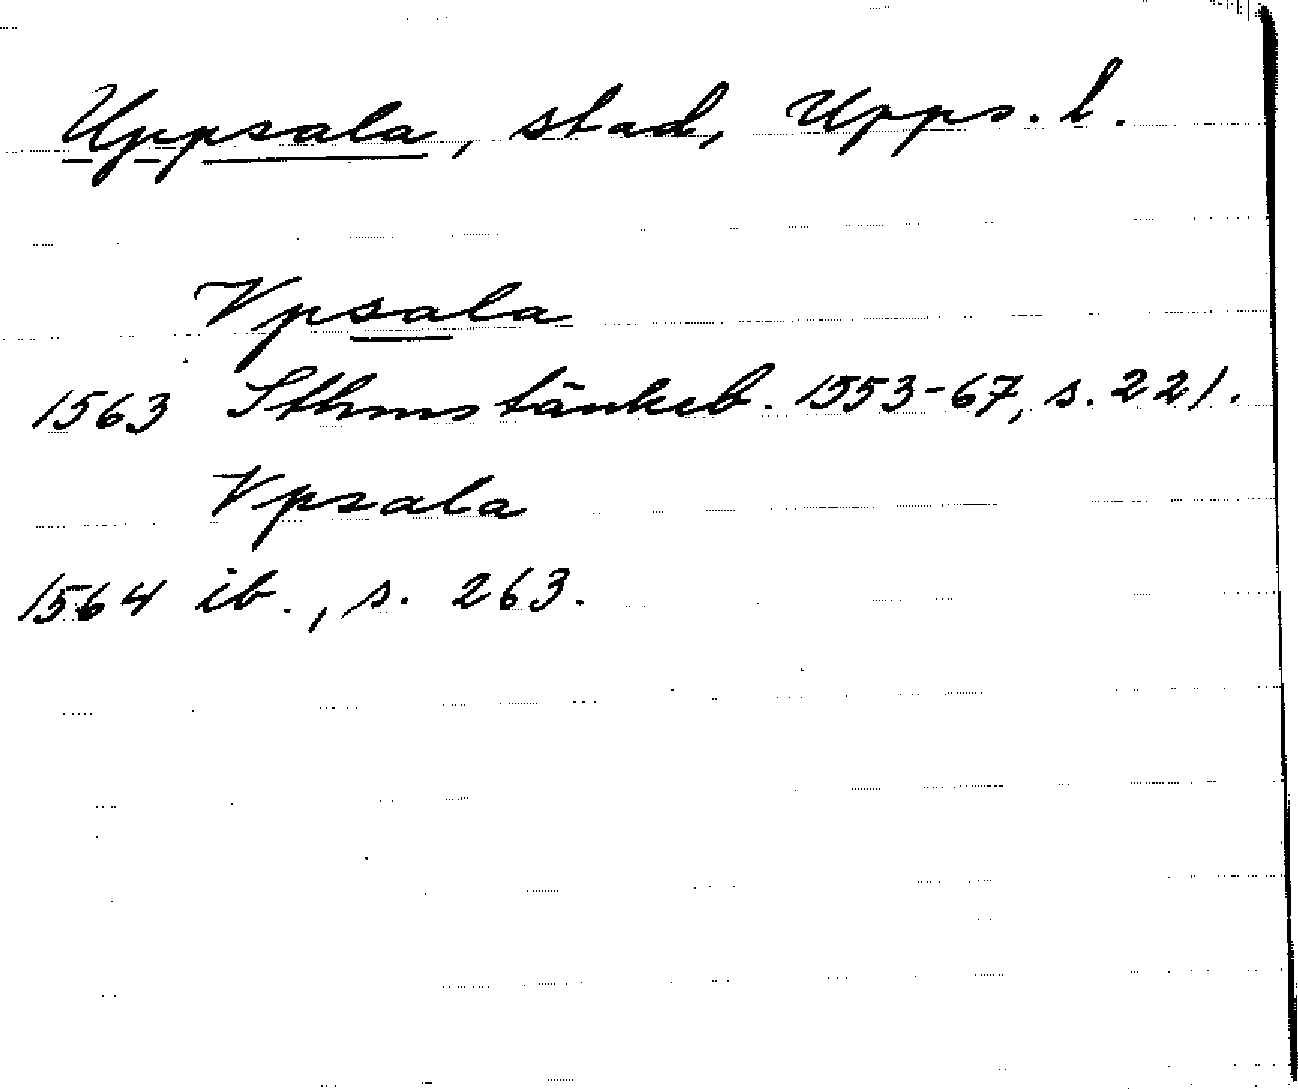 Uppsala, stad, Upps. l.
Vpsala
1563 Sthms tänkeb. 1553-67, s. 221.
Vpsala
1564 ib., s. 263.